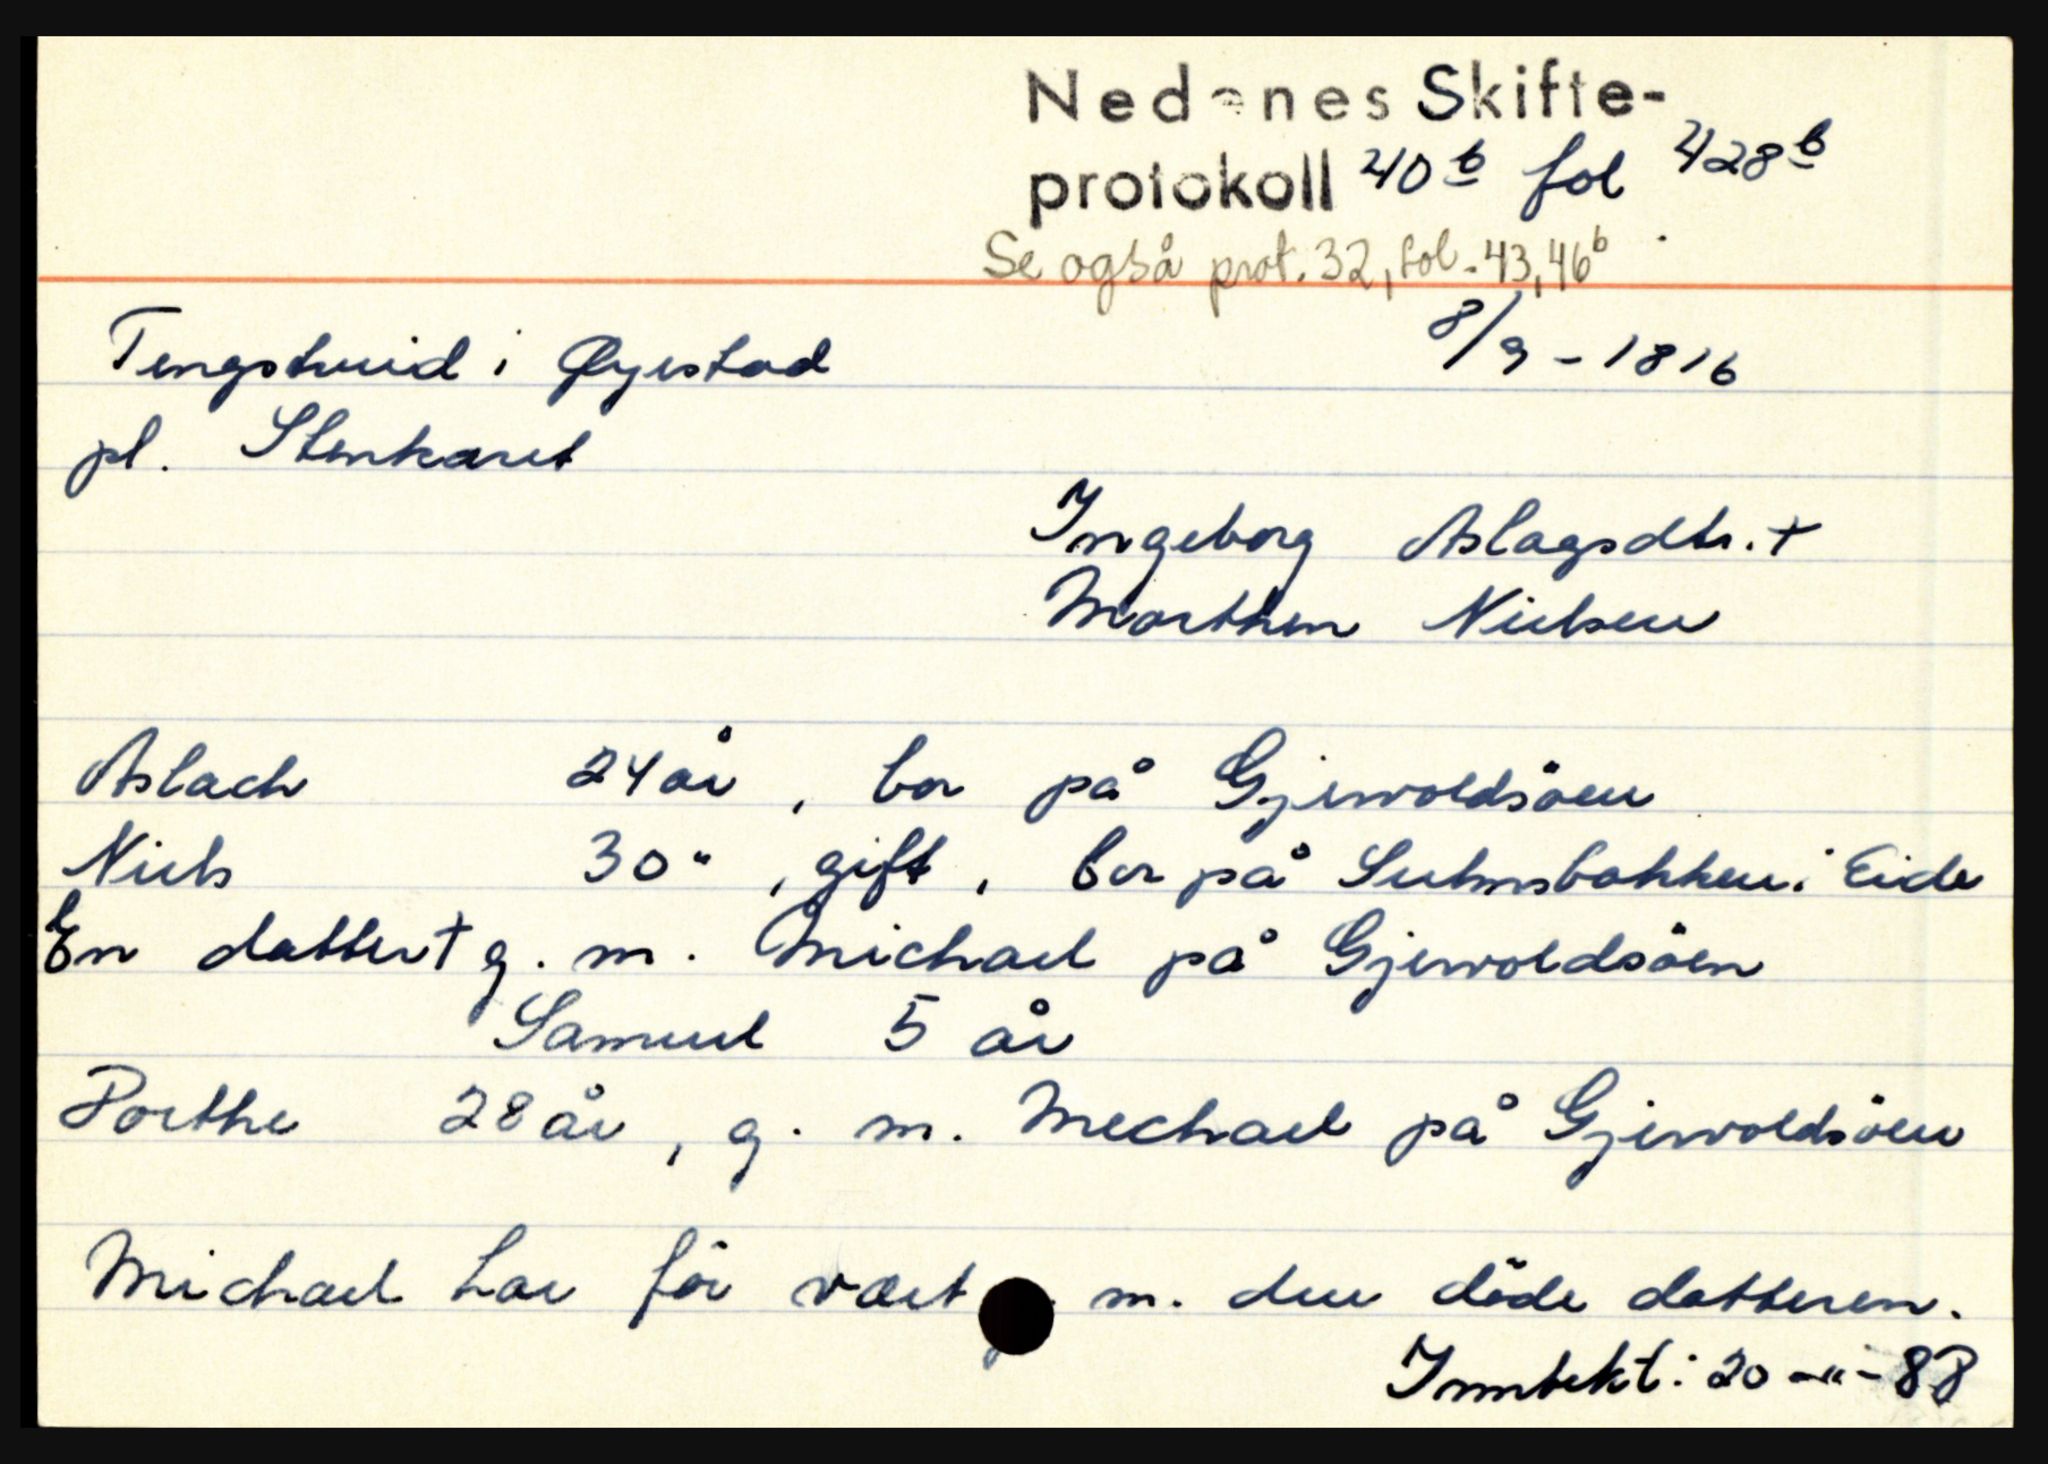 Nedenes Skifte-
protokoll 40b fol 428b
Se også prot. 32, fol. 43, 46b
8/9 - 1816
Tengshuid i Øyestad
pl. Stenkaret
Ingeborg Aslagsdtr. +
Morthen Nielsen
Aslach 24 år, bor på Gjervoldsöen
Niels 30 " , gift, bor på i Eide
En datter + g. m. Michael på Gjervoldsöen
Samuel 5 år
Dorthe 28 år, g. m. Mechael på Gjervoldsöen
Michael har för vært m. den döde datteren.
20 -"- 8